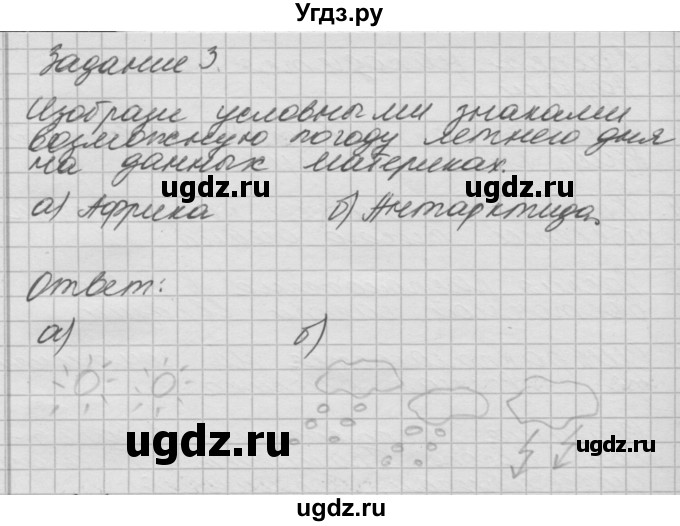 Угдз.ру
Задание 3.
Изобрази условными знаками
возможную погоду летнего дня
на данных материках.
ugdz.ru
ugdz.ru
а) Африка б) Антарктида.
Ответ:
а) б)
ugdz.ru
ugdz.ru
ugdz.ru